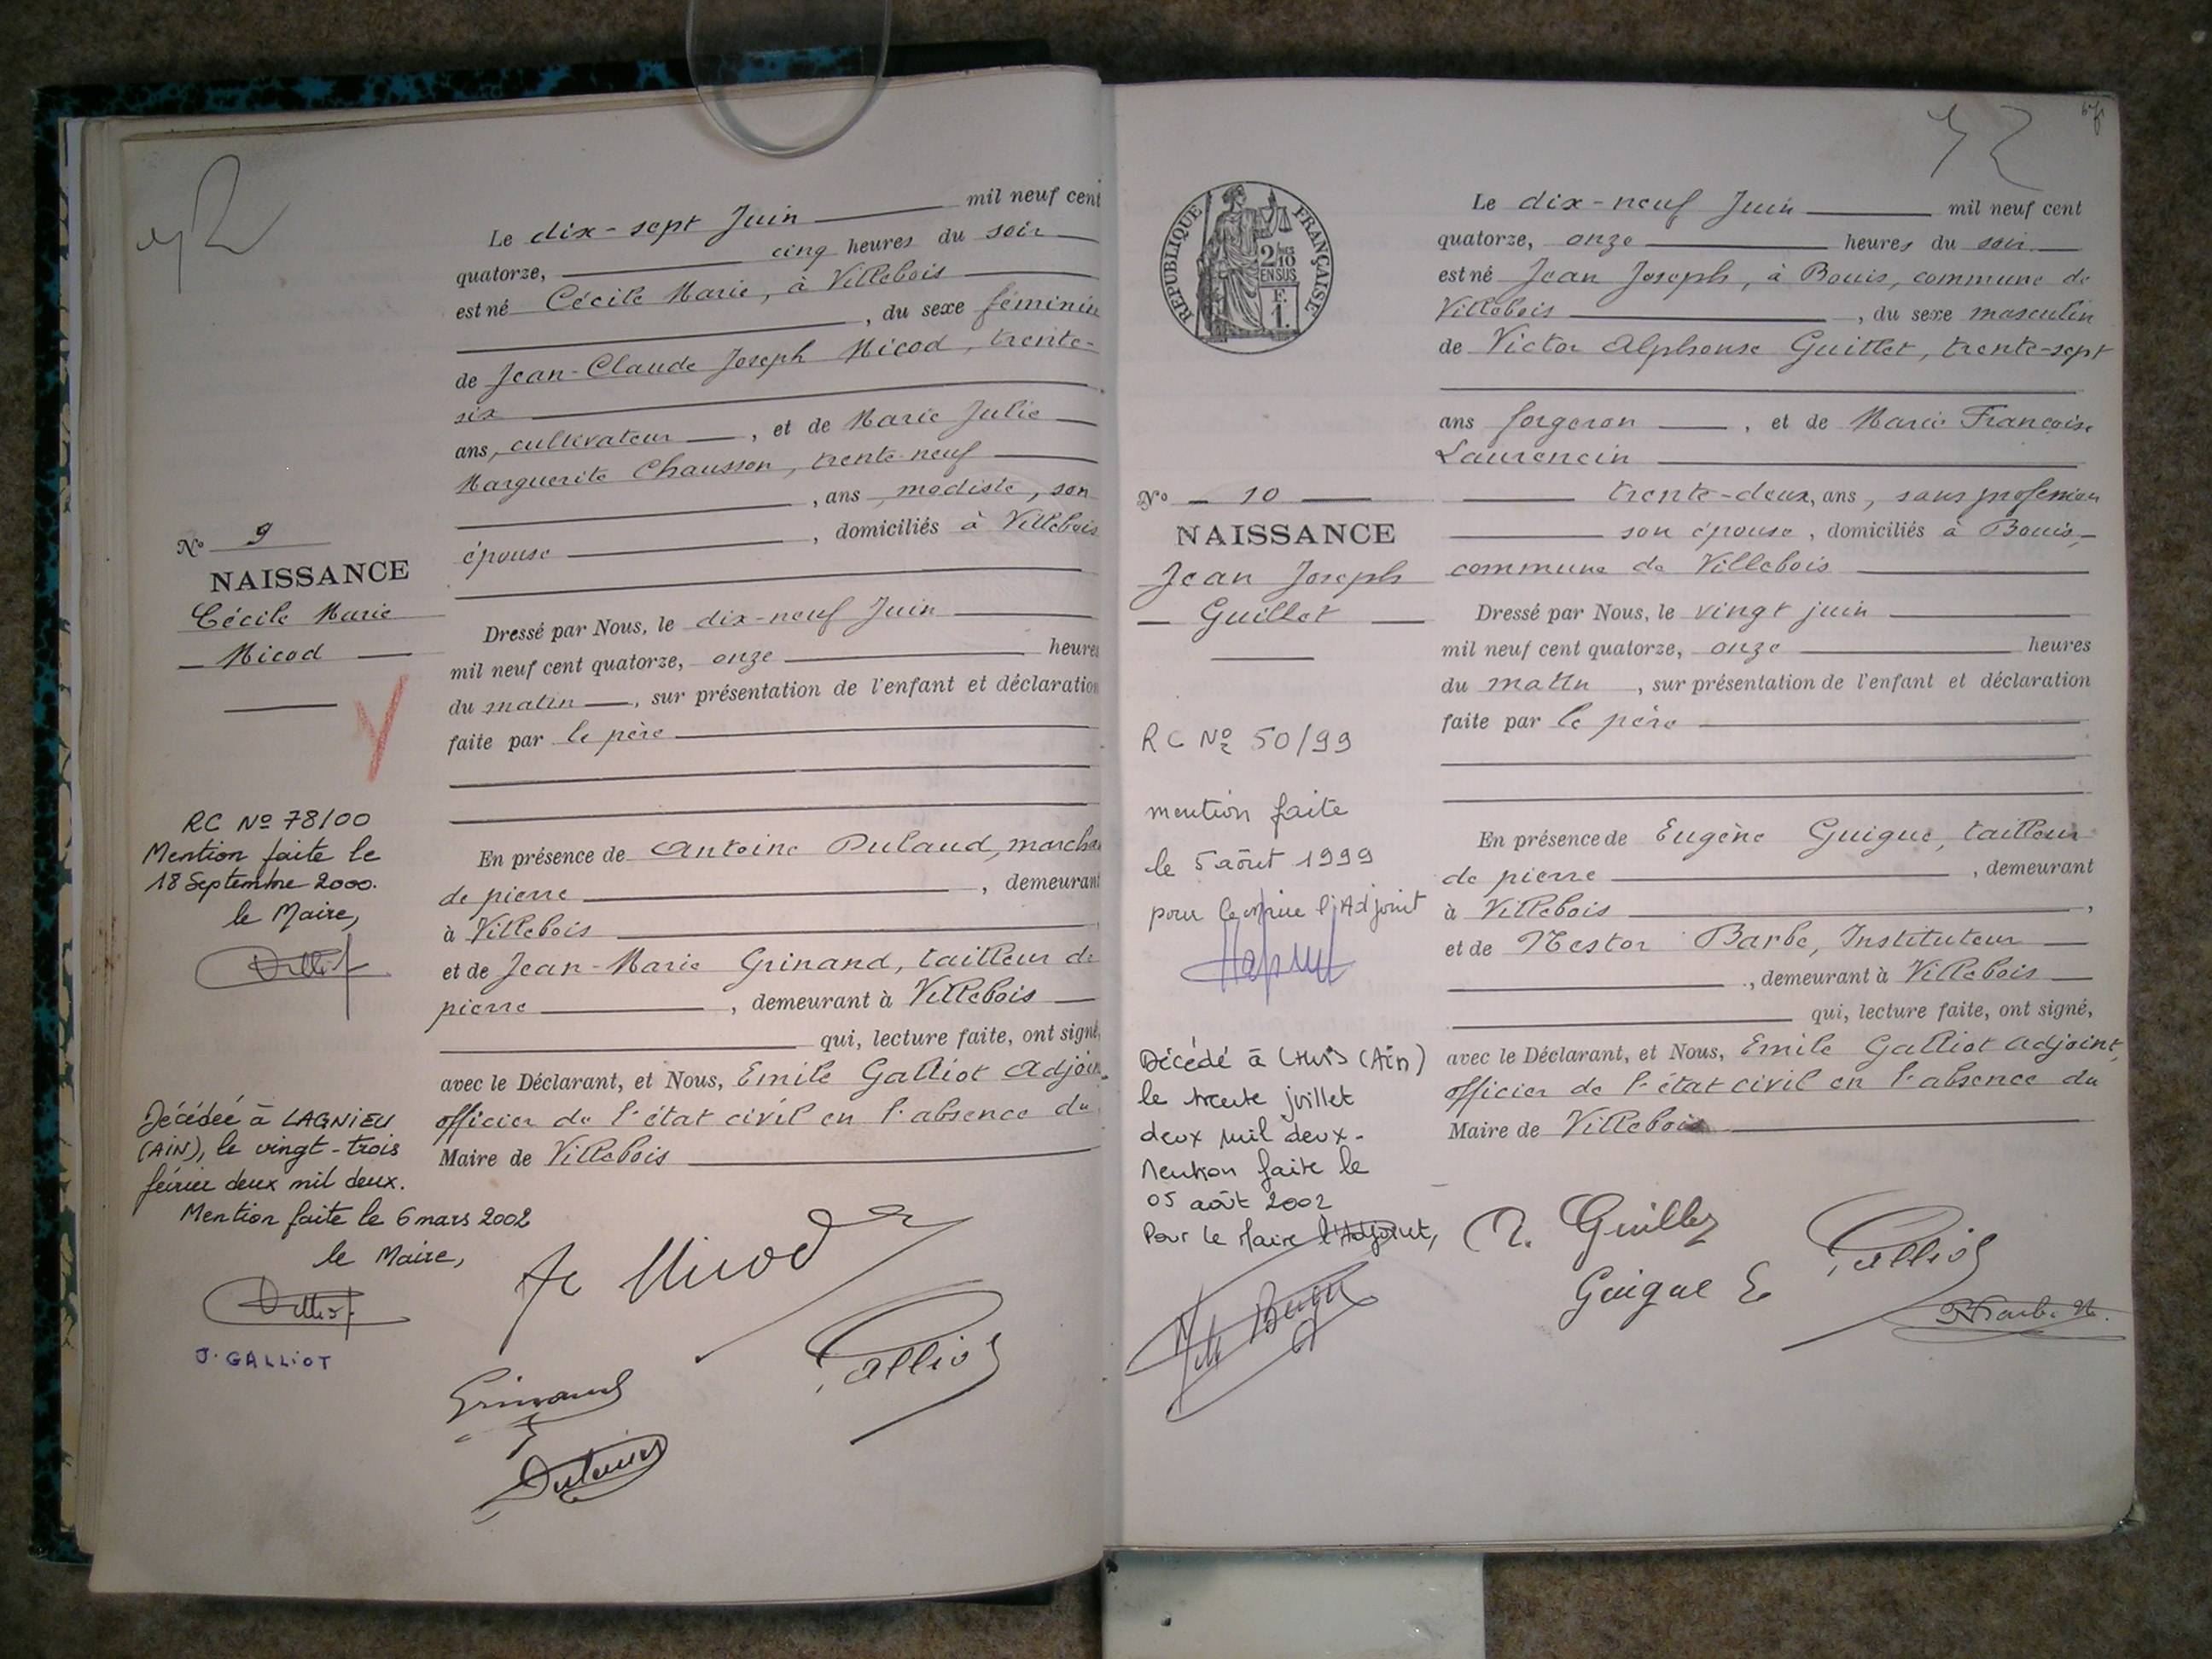 Le dix-sept Juin mil neuf cent
quatorze, cinq heures du soir
est né Cécile Marie, à Villebois
, du sexe féminin
de Jean-Claude Joseph Nicod, trente-
six
ans, cultivateur, et de Marie Julie
Marguerite Chausson, trente-neuf
, ans, modiste, son
épouse, domiciliés à Villebois
Nº 9
NAISSANCE
Cécile Marie
Nicod
Dressé par Nous, le dix-neuf Juin
mil neuf cent quatorze, onze heures
du matin, sur présentation de l'enfant et déclaration
faite par le père
RC Nº 78/00
Mention faite le
18 Septembre 2000.
le Maire,
En présence de Antoine Dulaud, marchan
de pierre, demeurant
à Villebois
et de Jean-Marie Grinand, tailleur de
pierre, demeurant à Villebois
qui, lecture faite, ont signé,
avec le Déclarant, et Nous, Emile Galliot Adjoin
officier de l'état civil en l'absence du
Maire de Villebois
Décédée à LAGNIEU
(AIN), le vingt-trois
février deux mil deux.
Mention faite le 6 mars 2002
le Maire,
J. GALLIOT
Nicod
Galliot
Grinand
52
RÉPUBLIQUE FRANÇAISE
2/10
EN SUS
F.
1.
Le dix-neuf Juin mil neuf cent
quatorze, onze heures du soir
est né Jean Joseph, à Bouis, commune de
Villebois, du sexe masculin
de Victor Alphonse Guillet, trente-sept
ans forgeron, et de Marie Françoise
Laurencin
trente-deux, ans, sans profession
son épouse, domiciliés à Bouis,
commune de Villebois
Nº 10
NAISSANCE
Jean Joseph
Guillet
Dressé par Nous, le vingt juin
mil neuf cent quatorze, onze heures
du matin, sur présentation de l'enfant et déclaration
faite par le père
RC Nº 50/99
mention faite
le 5 août 1999
pour le maire l'Adjoint
En présence de Eugène Guigue, tailleur
de pierre, demeurant
à Villebois,
et de Nestor Barbe, Instituteur
, demeurant à Villebois
qui, lecture faite, ont signé,
avec le Déclarant, et Nous, Emile Galliot Adjoint,
officier de l'état civil en l'absence du
Maire de Villebois
Décédé à LHUIS (Ain)
le trente juillet
deux mil deux.
Mention faite le
05 août 2002
Pour le Maire l'Adjoint,
Guillet
Galliot
Guigue E